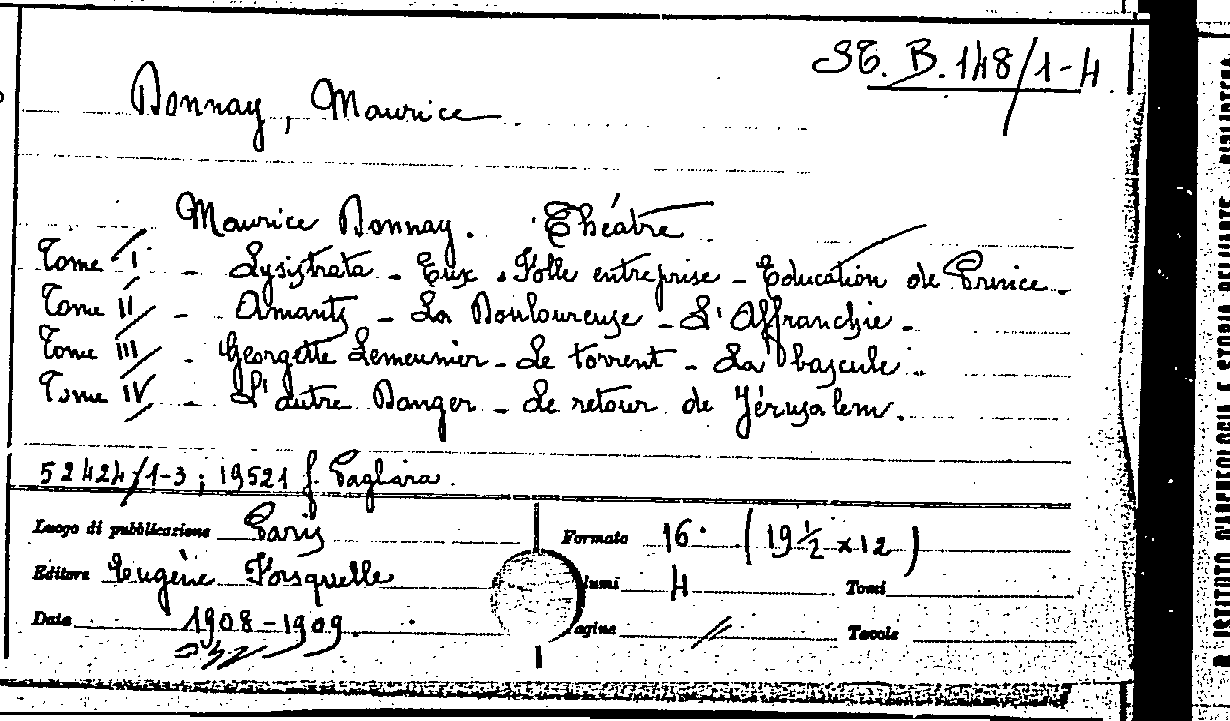 SE. B. 148/1-4
Donnay, Maurice
Maurice Donnay. Théatre
Tome I - Lysistrata - Eux. Folle entreprise - Education de Prince -
Tome II - Amants - La Douloureuse - L'Affranchie -
Tome III - Georgette Lemeunier - Le torrent - La bascule -
Tome IV - L'autre Danger - Le retour de Jérusalem.
52424/1-3 ; 19521 f. Pagliara.
Luogo di pubblicazione Paris Formato 16° (19 1/2 x 12)
Editore Eugène Fasquelle lumi 4 Tomi
Data 1908-1909. agine // Tavole